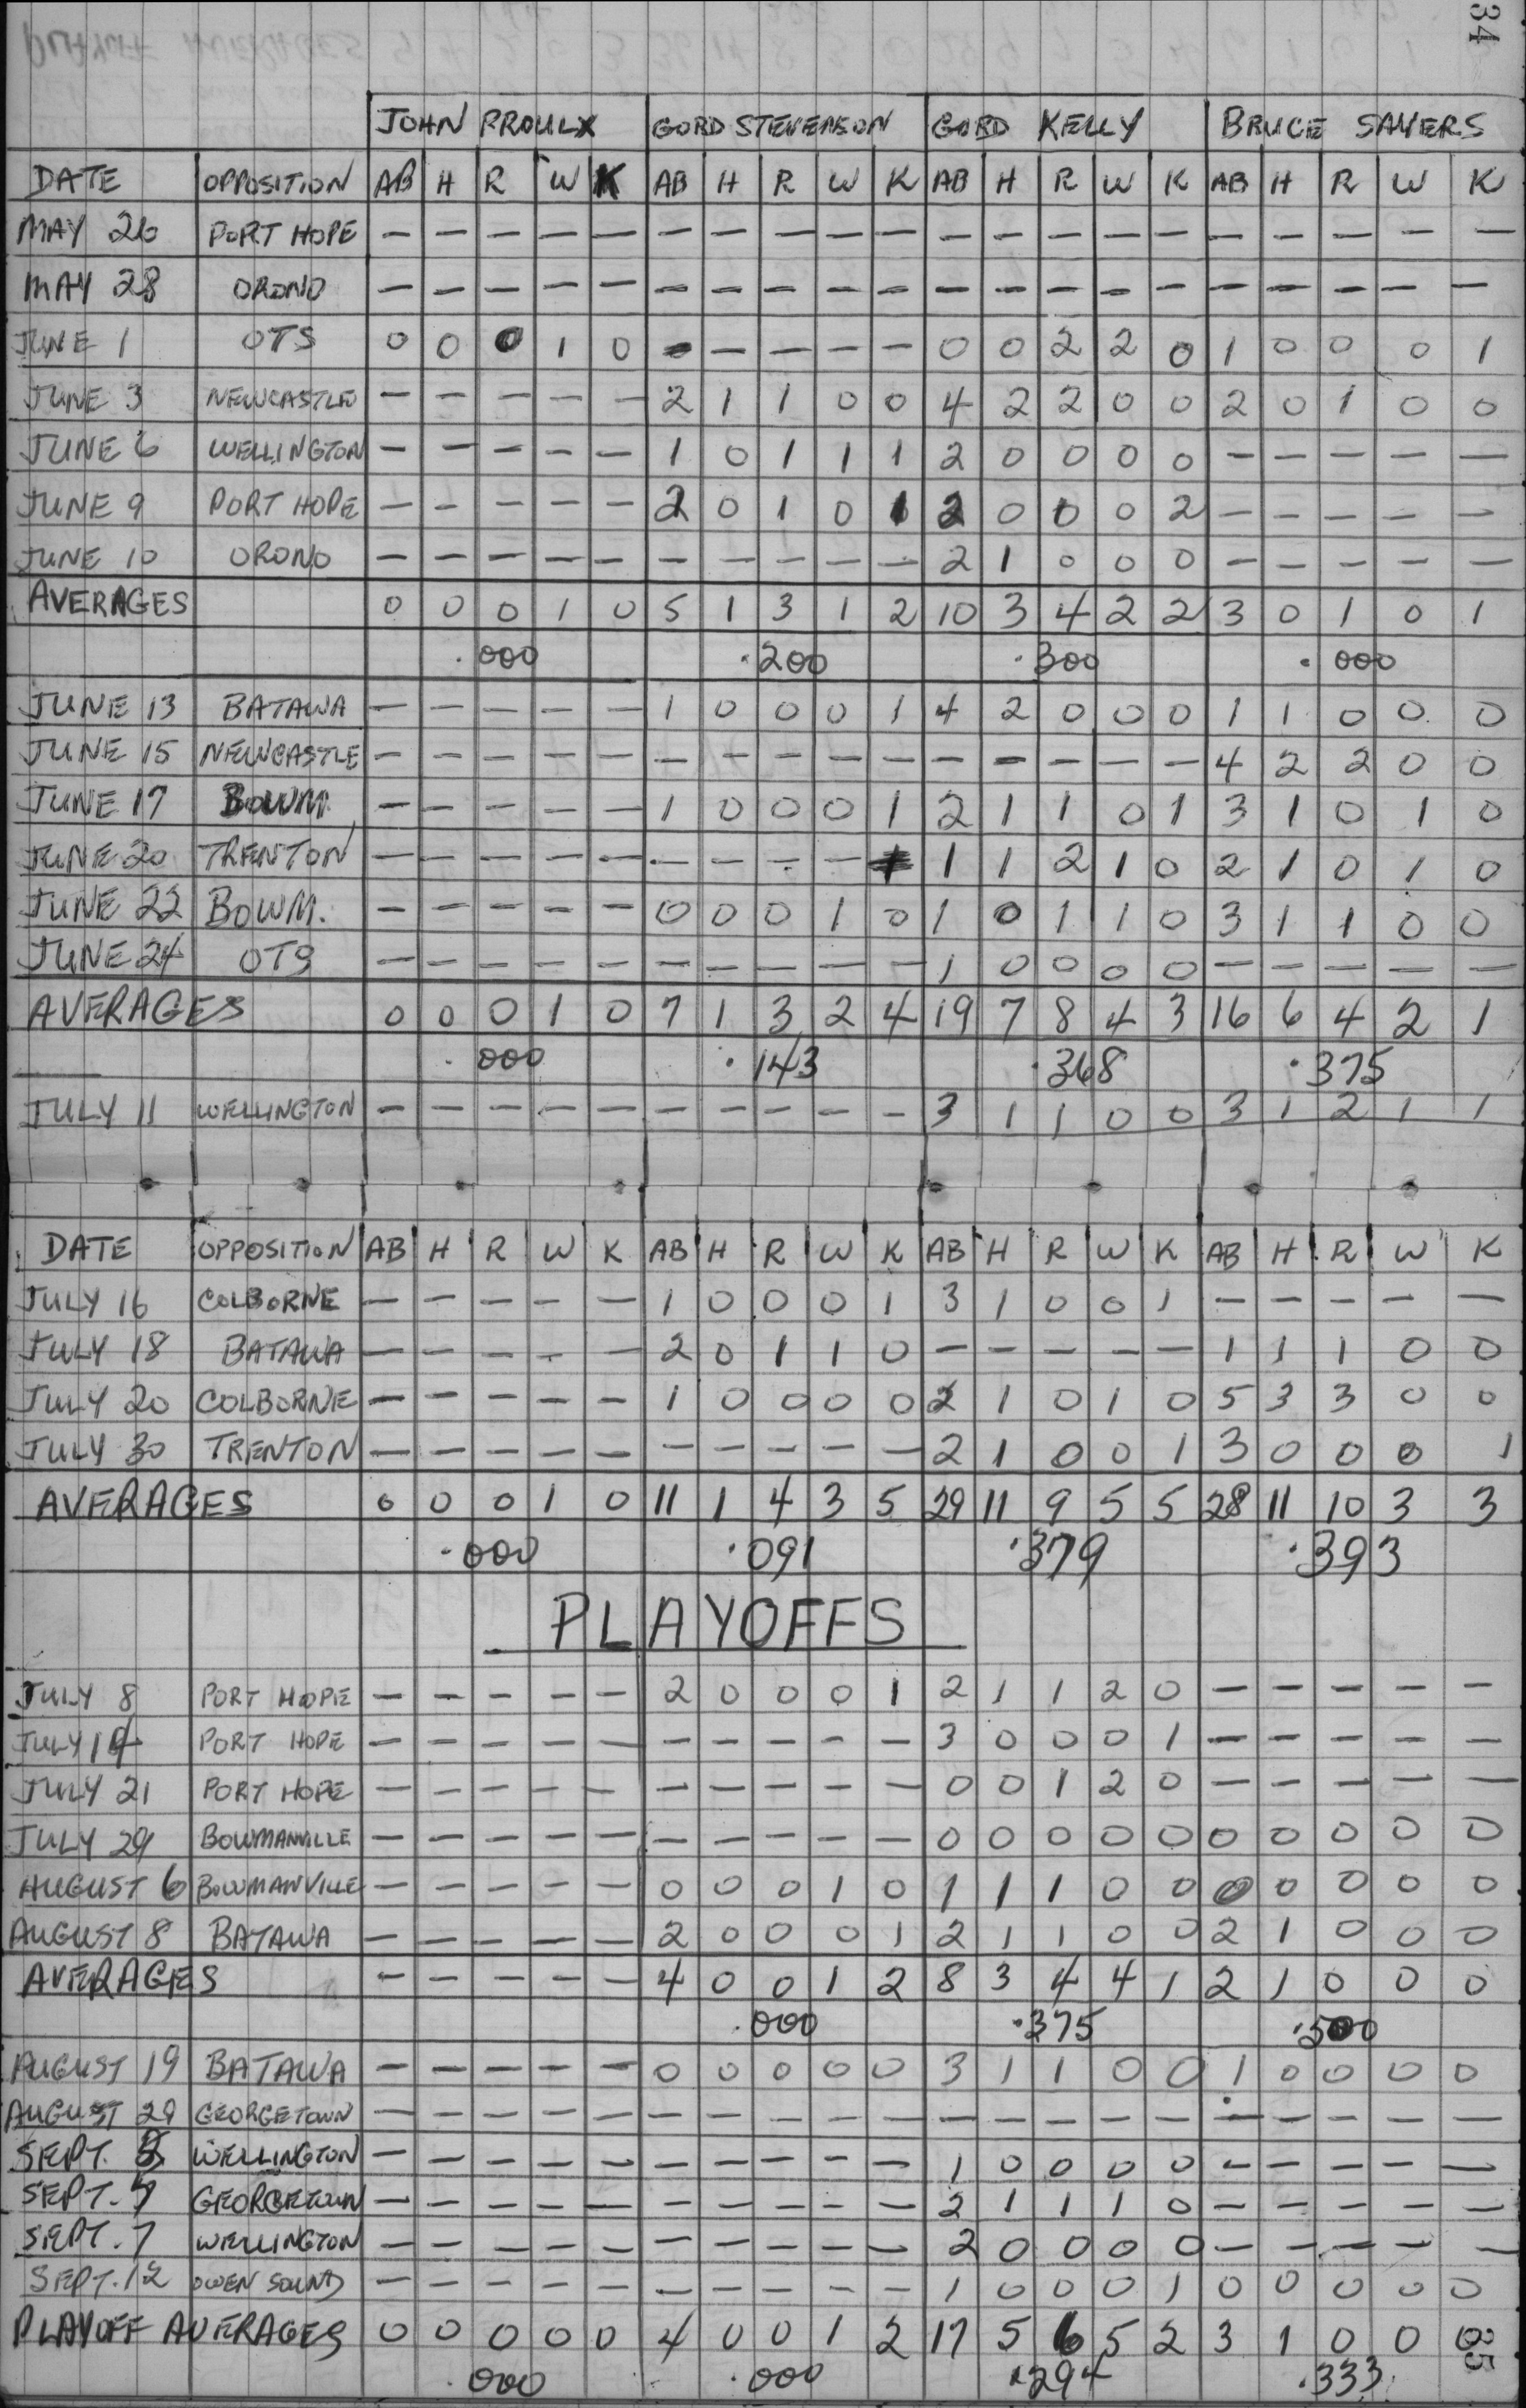 34
JOHN PROULX GORD STEVENSON GORD KELLY BRUCE SAYERS
DATE OPPOSITION AB H R W K AB H R W K AB H R W K AB H R W K
MAY 26 PORT HOPE — — — — — — — — — — — — — — — — — — — —
MAY 28 ORONO — — — — — — — — — — — — — — — — — — — —
JUNE 1 OTS 0 0 0 1 0 — — — — — 0 0 2 2 0 1 0 0 0 1
JUNE 3 NEWCASTLE — — — — — 2 1 1 0 0 4 2 2 0 0 2 0 1 0 0
JUNE 6 WELLINGTON — — — — — 1 0 1 1 1 2 0 0 0 0 — — — — —
JUNE 9 PORT HOPE — — — — — 2 0 1 0 1 2 0 0 0 2 — — — — —
JUNE 10 ORONO — — — — — — — — — — 2 1 0 0 0 — — — — —
AVERAGES 0 0 0 1 0 5 1 3 1 2 10 3 4 2 2 3 0 1 0 1
.000 .200 .300 .000
JUNE 13 BATAWA — — — — — 1 0 0 0 1 4 2 0 0 0 1 1 0 0 0
JUNE 15 NEWCASTLE — — — — — — — — — — — — — — — 4 2 2 0 0
JUNE 17 BOWM. — — — — — 1 0 0 0 1 2 1 1 0 1 3 1 0 1 0
JUNE 20 TRENTON — — — — — — — — — 1 1 2 1 0 2 1 0 1 0
JUNE 22 BOWM. — — — — — 0 0 0 1 0 1 0 1 1 0 3 1 1 0 0
JUNE 24 OTS — — — — — — — — — — 1 0 0 0 0 — — — — —
AVERAGES 0 0 0 1 0 7 1 3 2 4 19 7 8 4 3 16 6 4 2 1
.000 .143 .368 .375
JULY 11 WELLINGTON — — — — — — — — — — 3 1 1 0 0 3 1 2 1 1
DATE OPPOSITION AB H R W K AB H R W K AB H R W K AB H R W K
JULY 16 COLBORNE — — — — — 1 0 0 0 1 3 1 0 0 1 — — — — —
JULY 18 BATAWA — — — — — 2 0 1 1 0 — — — — — 1 1 1 0 0
JULY 20 COLBORNE — — — — — 1 0 0 0 0 2 1 0 1 0 5 3 3 0 0
JULY 30 TRENTON — — — — — — — — — — 2 1 0 0 1 3 0 0 0 1
AVERAGES 0 0 0 1 0 11 1 4 3 5 29 11 9 5 5 28 11 10 3 3
.000 .091 .379 .393
PLAYOFFS
JULY 8 PORT HOPE — — — — — 2 0 0 0 1 2 1 1 2 0 — — — — —
JULY 14 PORT HOPE — — — — — — — — — — 3 0 0 0 1 — — — — —
JULY 21 PORT HOPE — — — — — — — — — — 0 0 1 2 0 — — — — —
JULY 29 BOWMANVILLE — — — — — — — — — — 0 0 0 0 0 0 0 0 0 0
AUGUST 6 BOWMANVILLE — — — — — 0 0 0 1 0 1 1 1 0 0 0 0 0 0 0
AUGUST 8 BATAWA — — — — — 2 0 0 0 1 2 1 1 0 0 2 1 0 0 0
AVERAGES — — — — — 4 0 0 1 2 8 3 4 4 1 2 1 0 0 0
.000 .375 .500
AUGUST 19 BATAWA — — — — — 0 0 0 0 0 3 1 1 0 0 1 0 0 0 0
AUGUST 29 GEORGETOWN — — — — — — — — — — — — — — — — — — — —
SEPT. WELLINGTON — — — — — — — — — — 1 0 0 0 0 — — — — —
SEPT. GEORGETOWN — — — — — — — — — — 2 1 1 1 0 — — — — —
SEPT. 7 WELLINGTON — — — — — — — — — — 2 0 0 0 0 — — — — —
SEPT. 12 OWEN SOUND — — — — — — — — — — 1 0 0 0 1 0 0 0 0 0
PLAYOFF AVERAGES 0 0 0 0 0 4 0 0 1 2 17 5 6 5 2 3 1 0 0 0
.000 .000 .294 .333
35